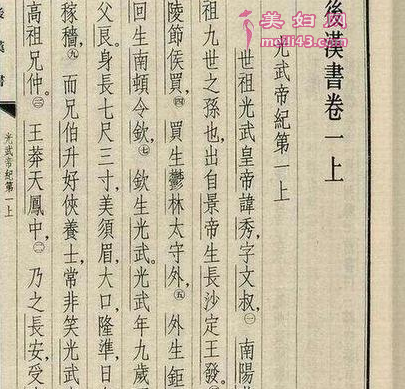 美妇网
www.meili43.com
後漢書卷一上
光武帝紀第一上
世祖光武皇帝諱秀,字文叔,㊀南陽
祖九世之孫也,出自景帝生長沙定王發。
陵節侯買,㊃買生鬱林太守外,㊄外生鉅
回生南頓令欽,㊆欽生光武。光武年九歲
父良。身長七尺三寸,美須眉,大口,隆準,日
稼穡。㊈而兄伯升好俠養士,常非笑光武
高祖兄仲。㊂王莽天鳳中,㊁乃之長安,受
後漢書
光武帝紀第一上